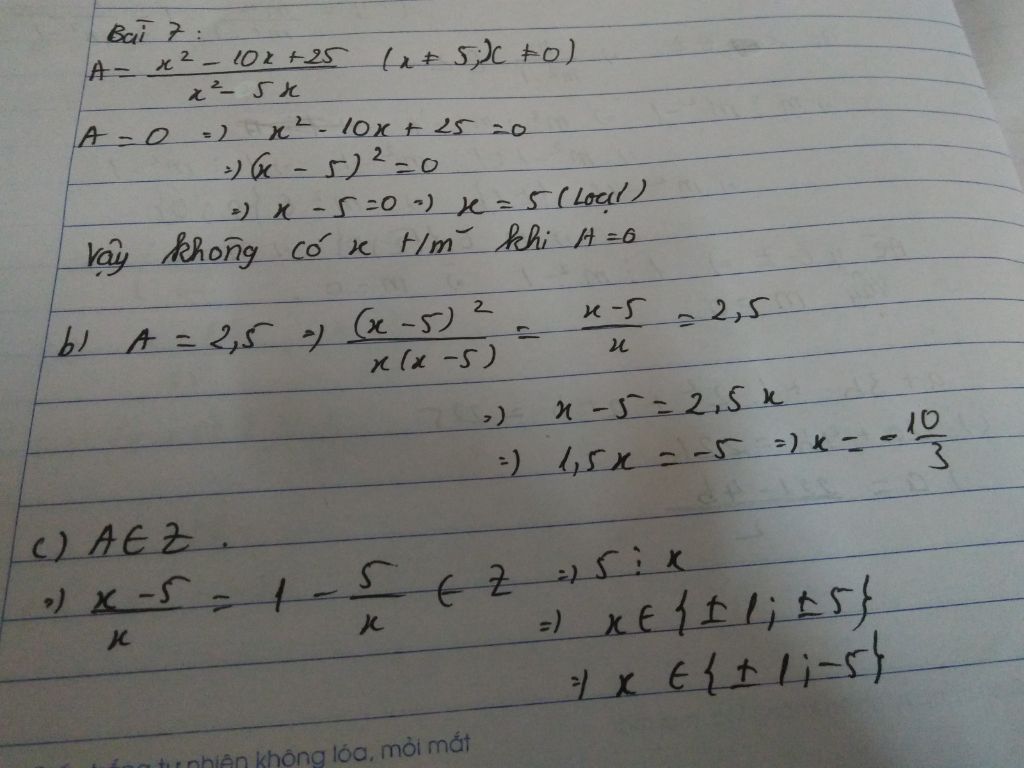 Bài 7 :
A = \frac{x² - 10x + 25}{x² - 5x} (x ≠ 5; x ≠ 0)
A = 0 => x² - 10x + 25 = 0
=> (x - 5)² = 0
=> x - 5 = 0 => x = 5 (loại)
Vậy không có x t/m khi A = 0
b) A = 2,5 => \frac{(x - 5)²}{x(x - 5)} = \frac{x - 5}{x} = 2,5
=> x - 5 = 2,5x
=> 1,5x = -5 => x = -\frac{10}{3}
c) A ∈ Z .
=> \frac{x - 5}{x} = 1 - \frac{5}{x} ∈ Z => 5 ⋮ x
=> x ∈ {± 1; ± 5}
=> x ∈ {± 1; -5}
tự nhiên không lóa, mỏi mắt